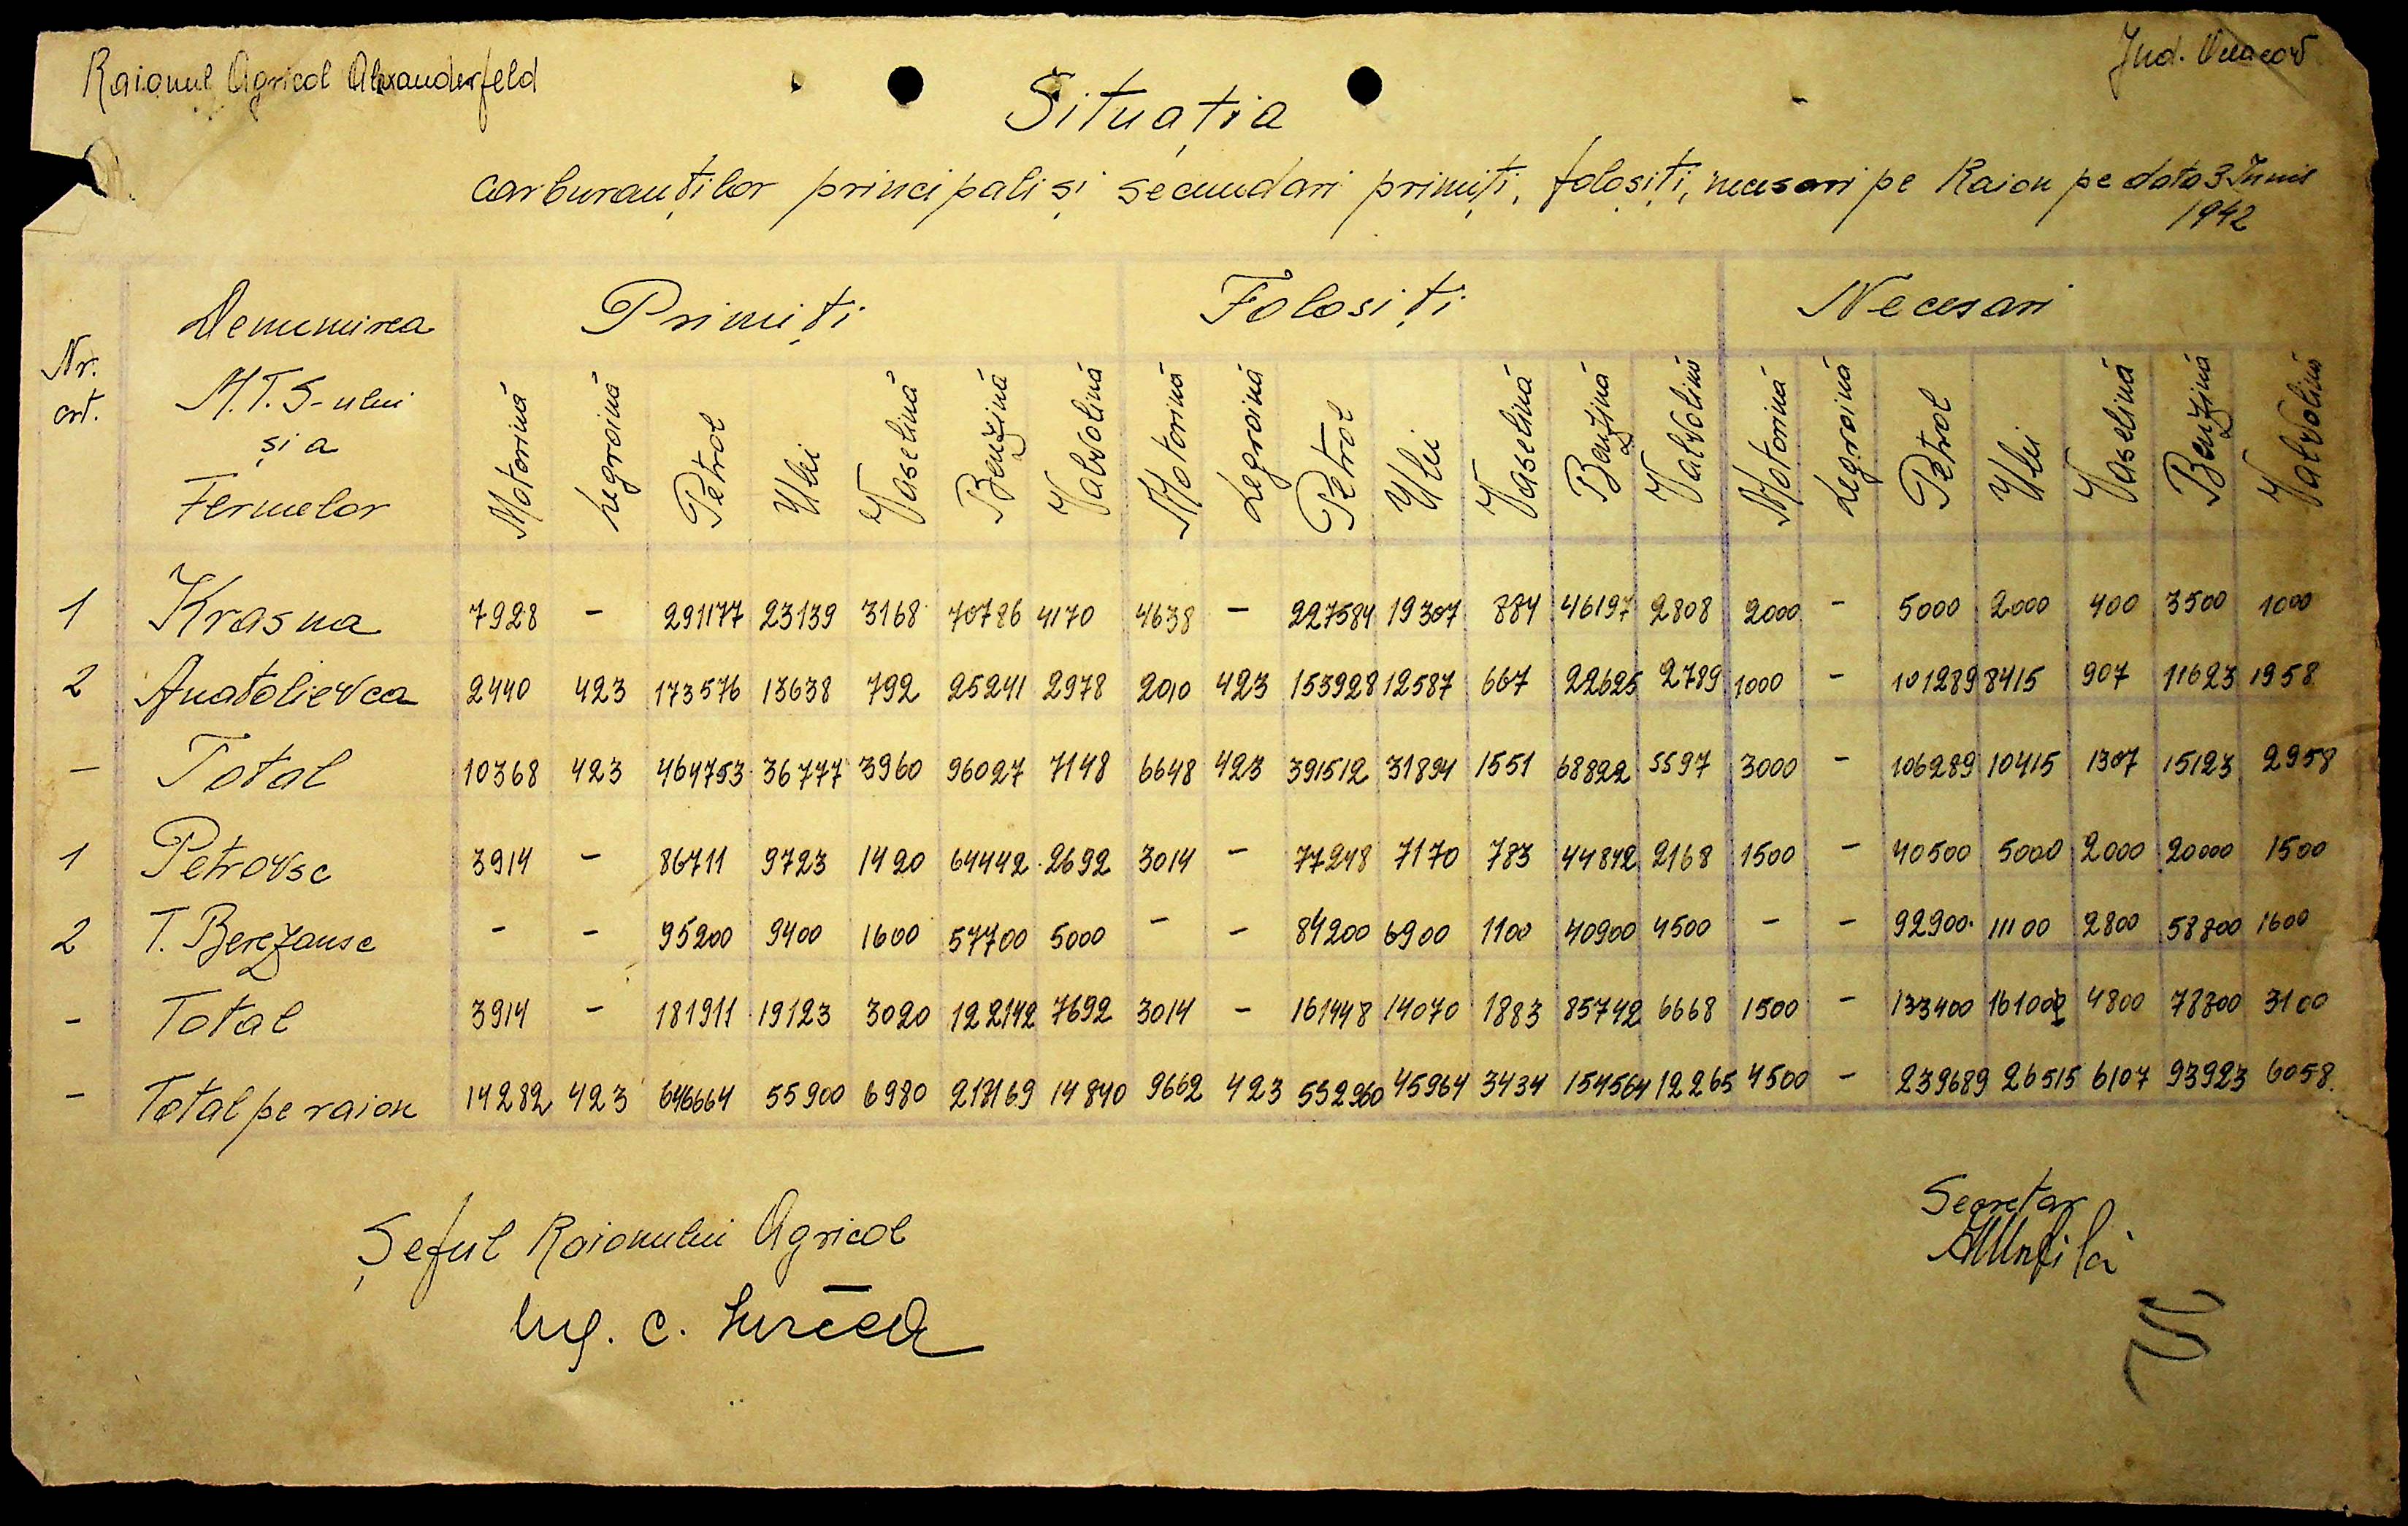 Raionul Agricol Alexanderfeld
Jud. Oceacov
Situația
carburanților principali și secundari primiți, folosiți, necesari pe Raion pe data 3 Iunie
1942
Nr. crt. Denumirea M.T.S-ului și a Fermelor Primiți Folosiți Necesari
Motorină Legroină Petrol Ulei Vaselină Benzină Valvolină Motorină Legroină Petrol Ulei Vaselină Benzină Valvolină Motorină Legroină Petrol Ulei Vaselină Benzină Valvolină
1 Krasna 7928 - 291177 23139 3168 70786 4170 4638 - 227584 19307 884 46197 2808 2000 - 5000 2000 400 3500 1000
2 Anatolievca 2440 423 173576 13638 792 25241 2978 2010 423 153928 12587 667 22625 2789 1000 - 101289 8415 907 11623 1958
- Total 10368 423 464753 36777 3960 96027 7148 6648 423 391512 31894 1551 68822 5597 3000 - 106289 10415 1307 15123 2958
1 Petrovsc 3914 - 86711 9723 1420 64442 2692 3014 - 77248 7170 783 44842 2168 1500 - 40500 5000 2000 20000 1500
2 T. Berezansc - - 95200 9400 1600 57700 5000 - - 84200 6900 1100 40900 4500 - - 92900 11100 2800 58800 1600
- Total 3914 - 181911 19123 3020 122142 7692 3014 - 161448 14070 1883 85742 6668 1500 - 133400 16100 4800 78800 3100
- Total pe raion 14282 423 646664 55900 6980 218169 14840 9662 423 552960 45964 3434 154564 12265 4500 - 239689 26515 6107 93923 6058
Șeful Raionului Agricol
Ing. C.
Secretar